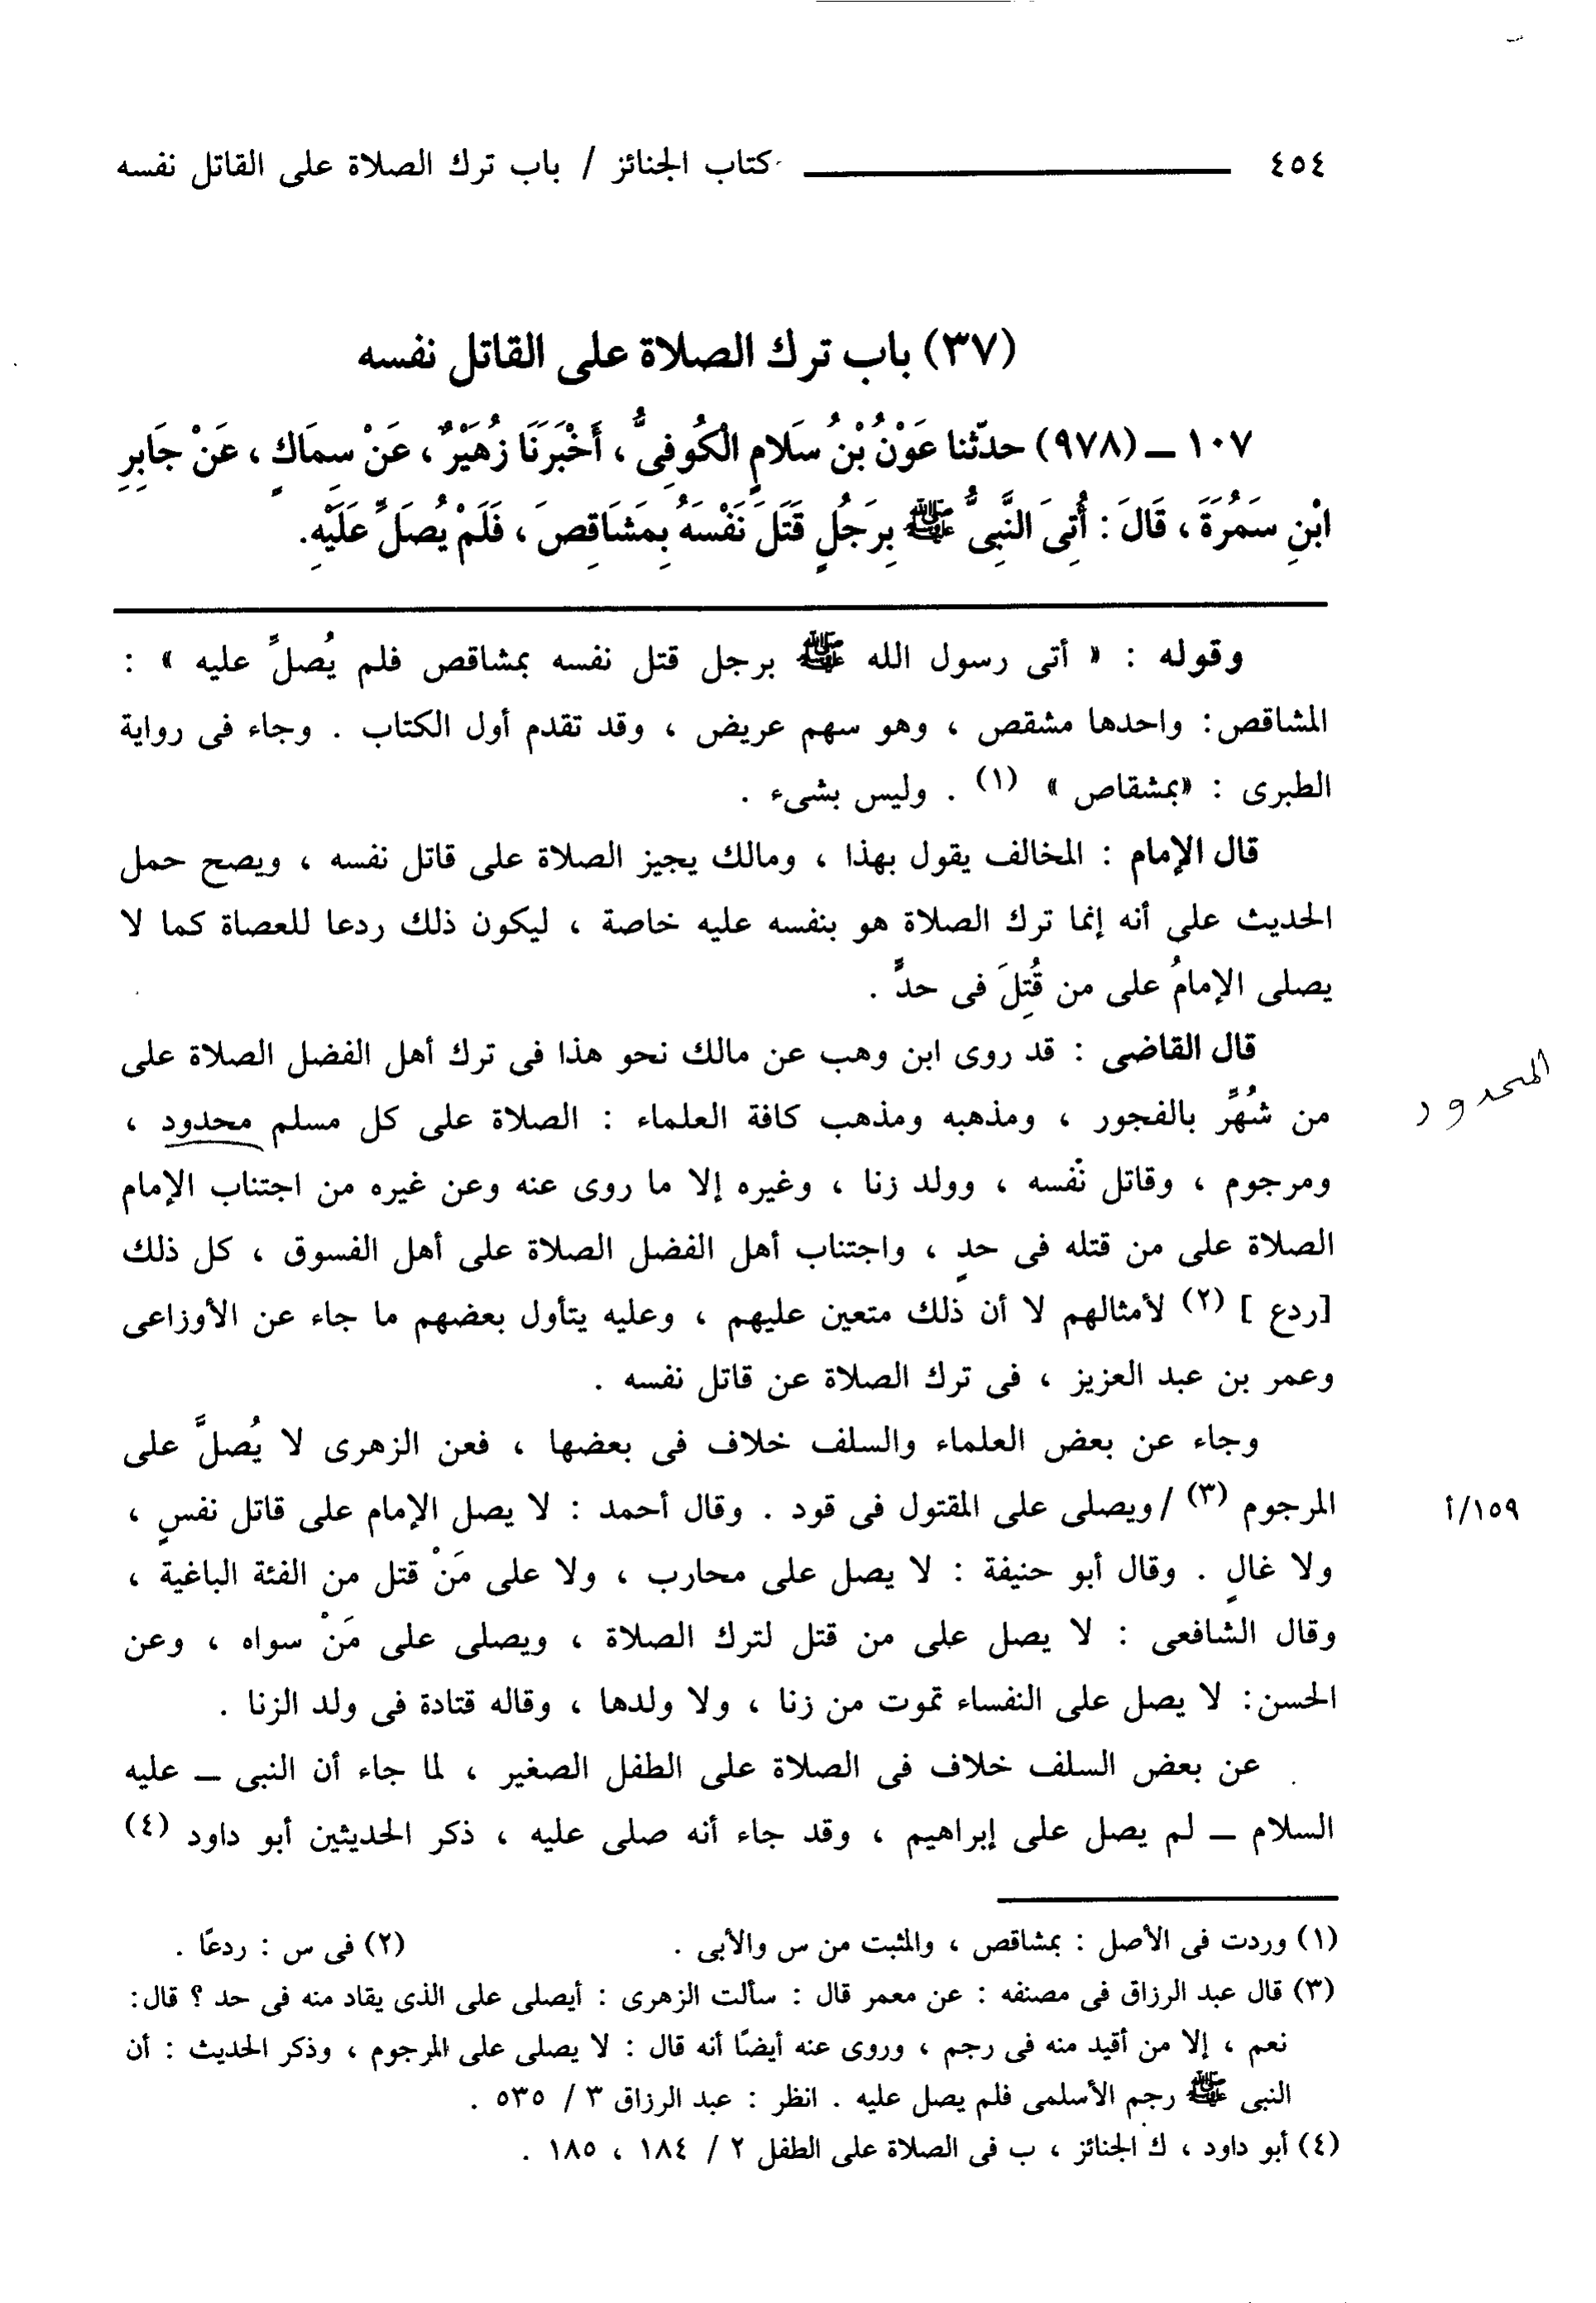 ٤٥٤ كتاب الجنائز / باب ترك الصلاة على القاتل نفسه
(٣٧) باب ترك الصلاة على القاتل نفسه
١٠٧ ــ (٩٧٨) حدّثنا عَوْنُ بْنُ سَلَامٍ الْكُوفِىُّ ، أَخْبَرَنَا زُهَيْرٌ ، عَنْ سِمَاكٍ ، عَنْ جَابِرِ
ابْنِ سَمُرَةَ ، قَالَ : أُتِىَ النَّبِىُّ ﷺ بِرَجُلٍ قَتَلَ نَفْسَهُ بِمَشَاقِصَ ، فَلَمْ يُصَلِّ عَلَيْهِ.
وقوله : « أتى رسول الله ﷺ برجل قتل نفسه بمشاقص فلم يُصلِّ عليه » :
المشاقص: واحدها مشقص ، وهو سهم عريض ، وقد تقدم أول الكتاب . وجاء فى رواية
الطبرى : «بمشقاص » (١) . وليس بشىء .
قال الإمام : المخالف يقول بهذا ، ومالك يجيز الصلاة على قاتل نفسه ، ويصح حمل
الحديث على أنه إنما ترك الصلاة هو بنفسه عليه خاصة ، ليكون ذلك ردعا للعصاة كما لا
يصلى الإمامُ على من قُتِلَ فى حدٍّ .
قال القاضى : قد روى ابن وهب عن مالك نحو هذا فى ترك أهل الفضل الصلاة على
المحدود
من شُهِّر بالفجور ، ومذهبه ومذهب كافة العلماء : الصلاة على كل مسلم محدود ،
ومرجوم ، وقاتل نفسه ، وولد زنا ، وغيره إلا ما روى عنه وعن غيره من اجتناب الإمام
الصلاة على من قتله فى حدٍ ، واجتناب أهل الفضل الصلاة على أهل الفسوق ، كل ذلك
[ردع ] (٢) لأمثالهم لا أن ذلك متعين عليهم ، وعليه يتأول بعضهم ما جاء عن الأوزاعى
وعمر بن عبد العزيز ، فى ترك الصلاة عن قاتل نفسه .
وجاء عن بعض العلماء والسلف خلاف فى بعضها ، فعن الزهرى لا يُصلَّ على
المرجوم (٣) / ويصلى على المقتول فى قود . وقال أحمد : لا يصل الإمام على قاتل نفسٍ ،
١٥٩/أ
ولا غالٍ . وقال أبو حنيفة : لا يصل على محارب ، ولا على مَنْ قتل من الفئة الباغية ،
وقال الشافعى : لا يصل على من قتل لترك الصلاة ، ويصلى على مَنْ سواه ، وعن
الحسن: لا يصل على النفساء تموت من زنا ، ولا ولدها ، وقاله قتادة فى ولد الزنا .
عن بعض السلف خلاف فى الصلاة على الطفل الصغير ، لما جاء أن النبى ــ عليه
السلام ــ لم يصل على إبراهيم ، وقد جاء أنه صلى عليه ، ذكر الحديثين أبو داود (٤)
(١) وردت فى الأصل : بمشاقص ، والمثبت من س والأبى . (٢) فى س : ردعًا .
(٣) قال عبد الرزاق فى مصنفه : عن معمر قال : سألت الزهرى : أيصلى على الذى يقاد منه فى حد ؟ قال:
نعم ، إلا من أقيد منه فى رجم ، وروى عنه أيضًا أنه قال : لا يصلى على المرجوم ، وذكر الحديث : أن
النبى ﷺ رجم الأسلمى فلم يصل عليه . انظر : عبد الرزاق ٣ / ٥٣٥ .
(٤) أبو داود ، ك الجنائز ، ب فى الصلاة على الطفل ٢ / ١٨٤ ، ١٨٥ .